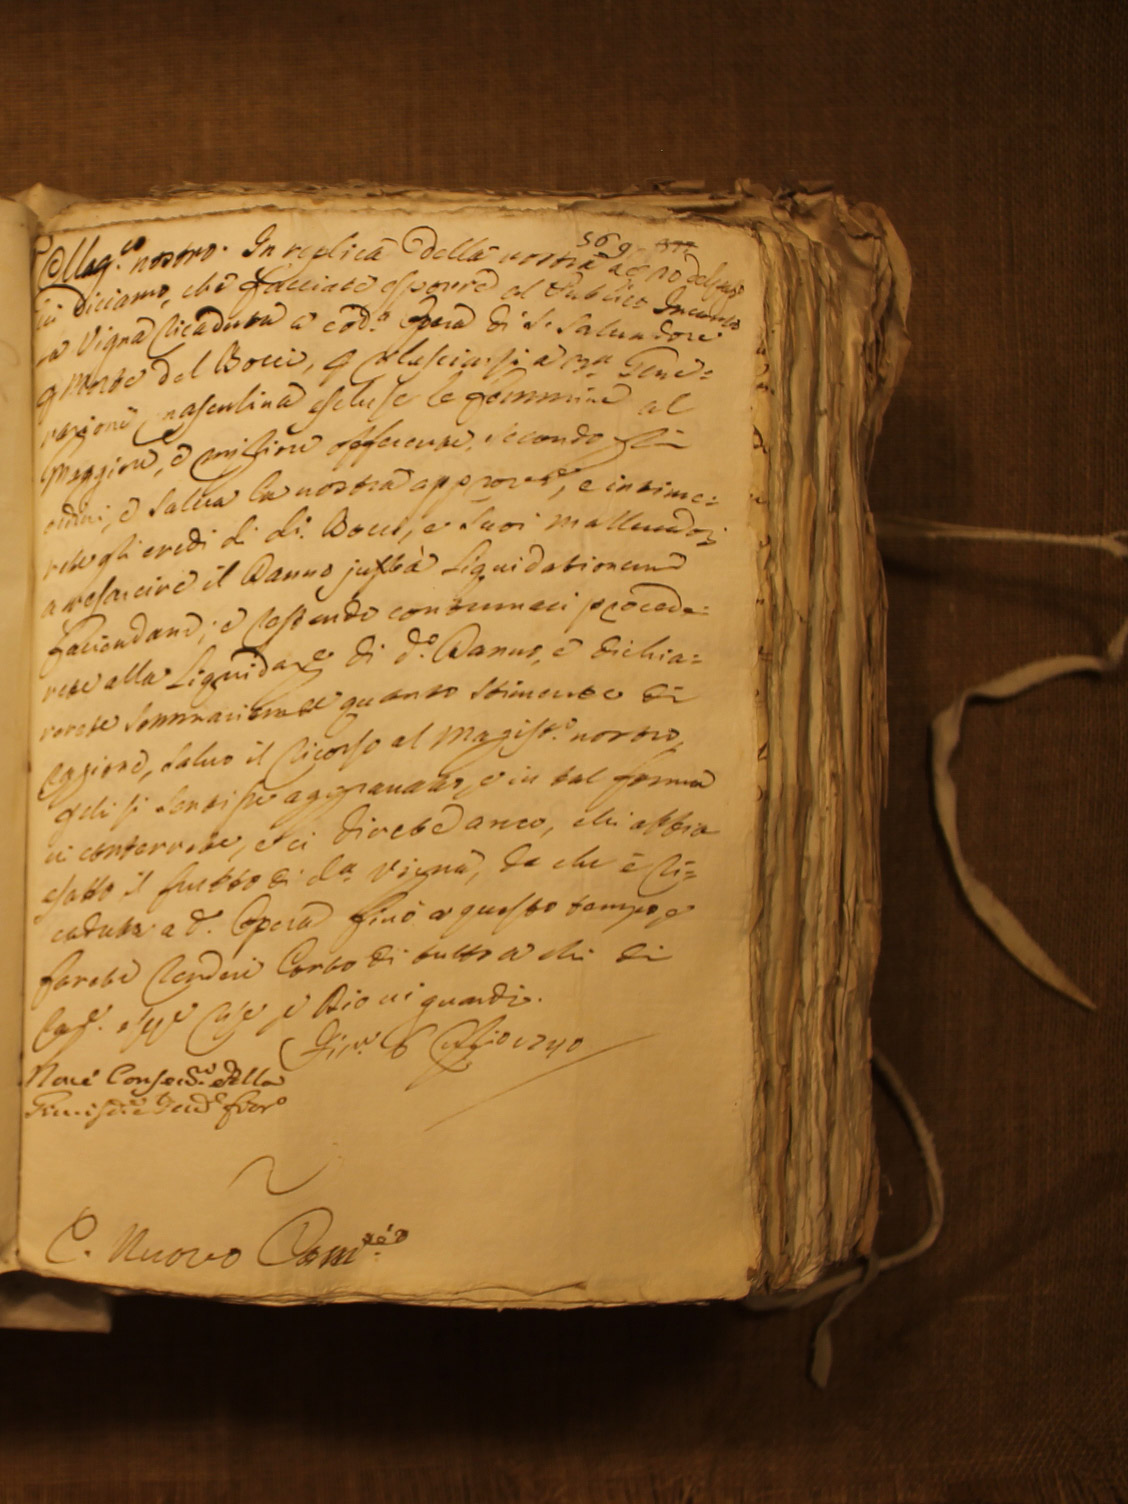 569 377
Mag.co nostro. In replica della vostra de 20 del
vi diciamo, che facciate esporre al Publico Incanto
la Vigna ricaduta a cod.a Opera di S. Salvadore
p morte del Bocci, p rilasciarsi a 3.a Gene=
razione mascolina escluse le femmine al
Maggiore, e migliore offerente, secondo gli
ordini, e salva la nostra approv.e, e intime=
rete gli eredi di d.o Bocci, e suoi mallevadori
a resarcire il Danno juxta Liquidationem
faciendam; e restando contumaci procede=
rete alla Liquidaz.e di d.o Danno, e dichia=
rerete sommariam.te quanto stimerete di
ragione, salvo il ricorso al Magist.o nostro,
se si sentisse aggravato, e in tal forma
vi conterrete, e ci direte anco, chi abbia
esatto il frutto di d.a Vigna, da che è ri=
caduta a d.a Opera fino a questo tempo, e
farete rendere Conto di tutto a chi di
Rag.e e Dio vi guardi.
Fir.e 6 1740
Nove Conserv.ri della
Giurisd.e e Dom.o fior.o
C. Nuovo Dom.co